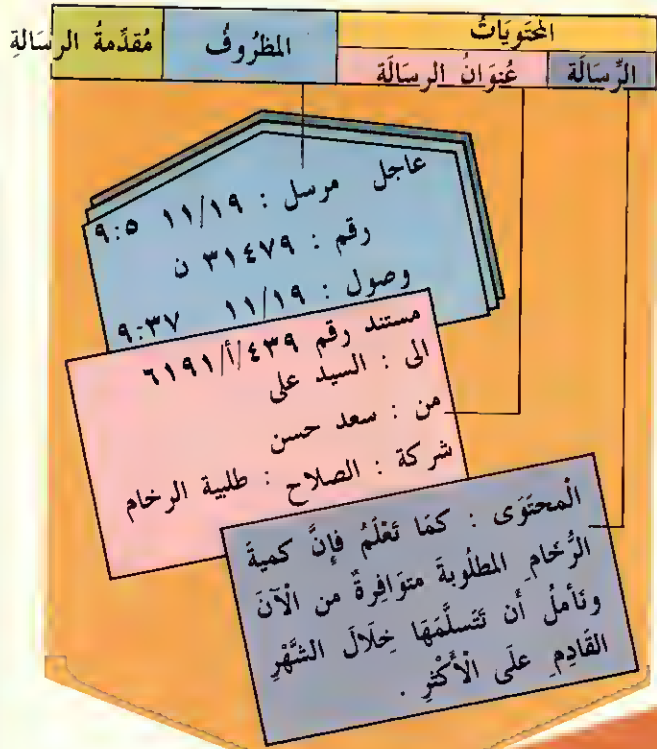 المحتَوَياتُ
المظرُوفُ
مُقدِّمةُ الرسَالةِ
الرِّسَالَة
عُنوَانُ الرسَالَة
عاجل مرسل : ١١/١٩ ٩:٥
رقم : ٣١٤٧٩ ن
وصول : ١١/١٩ ٩:٣٧
مستند رقم ٤٣٩/أ/٦١٩١
الى : السيد على
من : سعد حسن
شركة : الصلاح : طلبية الرخام
الْمحتَوَى : كمَا تَعْلَمُ فإِنَّ كميةَ
الرُّخَامِ المطلُوبةَ متوَافِرةٌ من الْآنَ
ونَأملُ أَن تَتَسلَّمَهَا خِلَالَ الشَّهْرِ
القَادِمِ علَى الْأَكْثرِ .